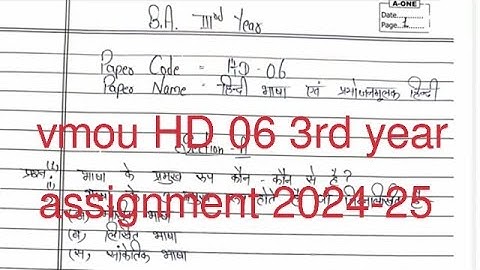 A-ONE
Date
Page 1
B.A. IIIrd Year
Paper Code = HD-06
Paper Name - हिन्दी भाषा एवं प्रयोजनमूलक हिन्दी
vmou HD 06 3rd year
Section-A
प्रश्न(1) भाषा के प्रमुख रूप कौन-कौन से है?
assignment 2024-25
(ब) लिखित भाषा
(स) सांकेतिक भाषा